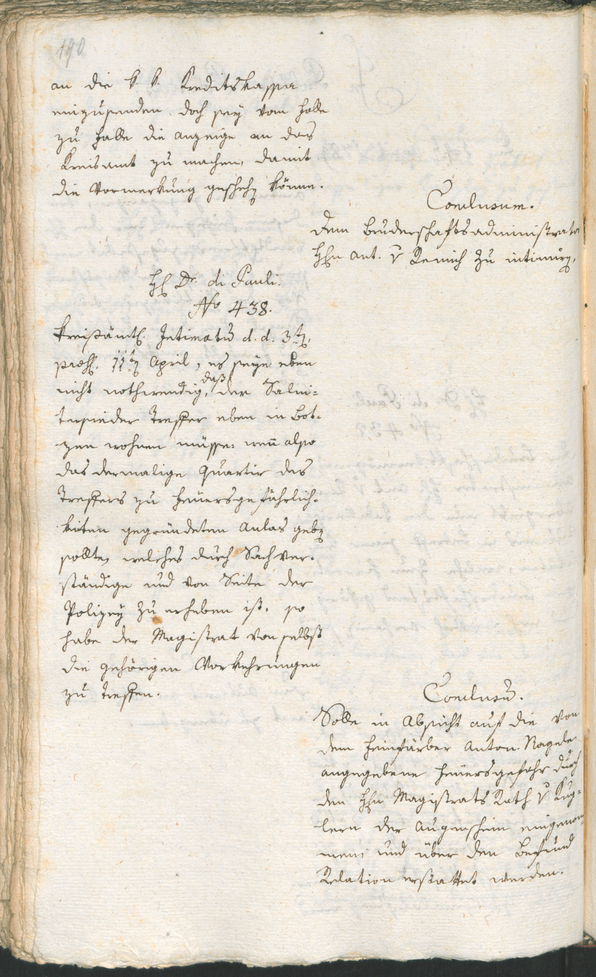 190
an die k k Kreditskassa
einzusenden, doch sey von Fall
zu Fall die Anzeige an das
Kreisamt zu machen, damit
die Vormerkung gescheh könne.
Conclusum.
dem Bruderschaftsadministrator
Hhn Ant. v Remich zu intimirn,
H Dr. di Pauli.
No 438.
Kreisämtl. Intimatū d. d. 3tn,
praes. 11tn April, es seye eben
nicht nothwendig, daß der Salni-
tersieder Tresser eben in Bot-
zen wohnen müsse; weñ also
das dermalige Quartir des
Tressers zu Feuersgefährlich-
keiten gegründeten Anlas gebn
sollte, welches durch Sachver-
ständige und von Seite der
Polizey zu erheben ist, so
habe der Magistrat von selbst
die gehörigen Vorkehrungen
zu treffen.
Conclusū.
Solle in Absicht auf die von
dem Feinfärber Anton Nagele
angegebene Feuersgefahr durch
den Hhn Magistrats Rath v. Kug-
lern der Augenschein eingenom
men, und über den Befund
Relation erstattet werden.